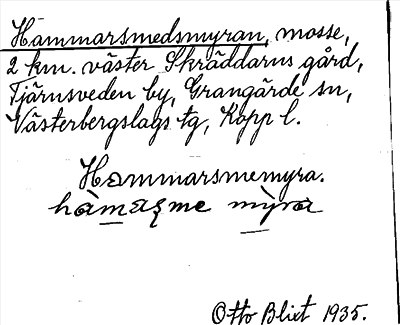 Hammarsmedsmyran, mosse,
2 km. väster Skräddarns gård,
Tjärnsveden by, Grangärde sn,
Västerbergslags tg, Kopp l.
Hammarsmemyra.
Otto Blixt 1935.